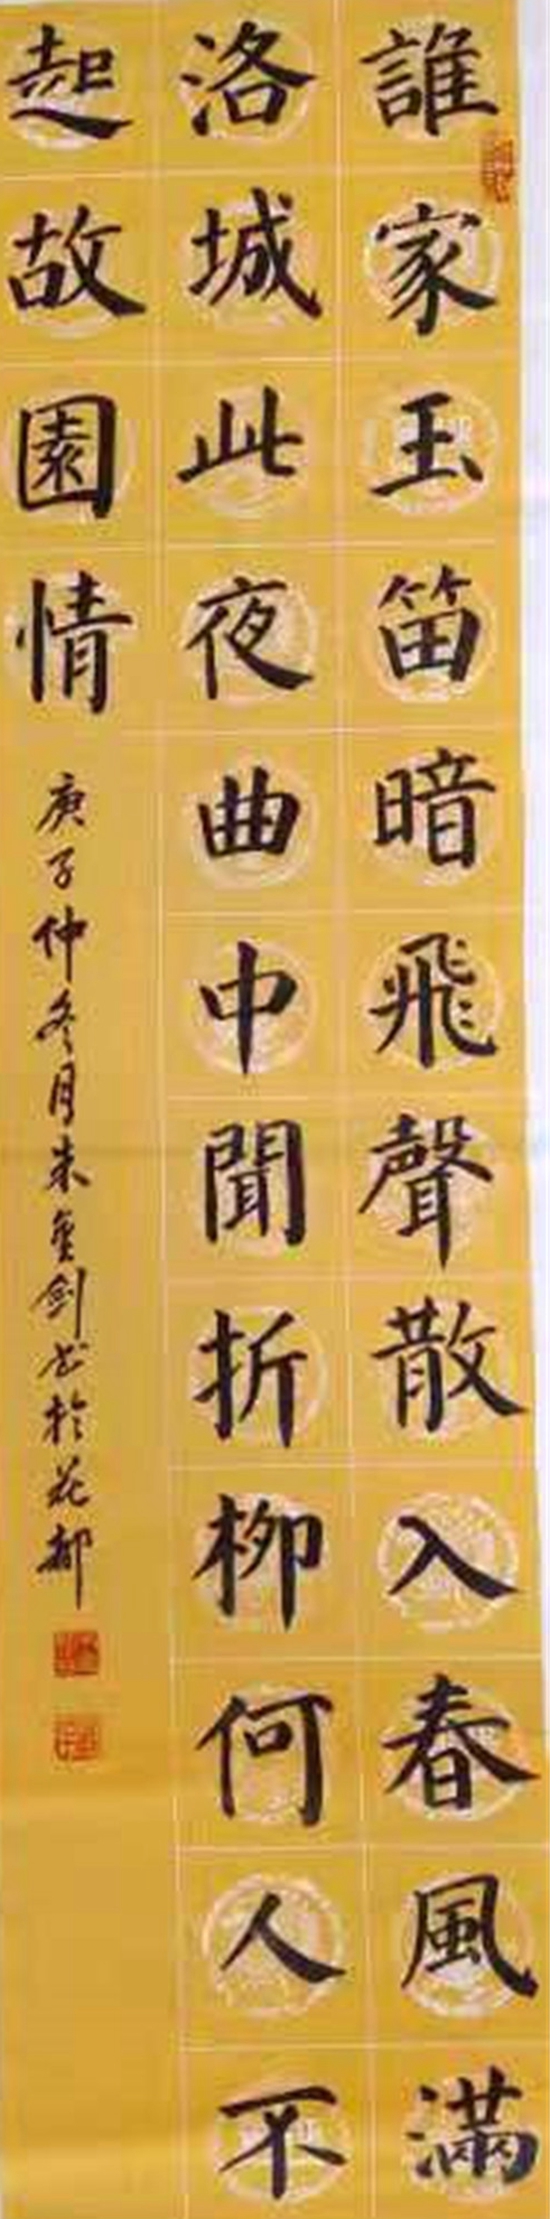 誰家玉笛暗飛聲散入春風滿
洛城此夜曲中聞折柳何人不
起故園情
庚子仲冬月朱金剑书於花都